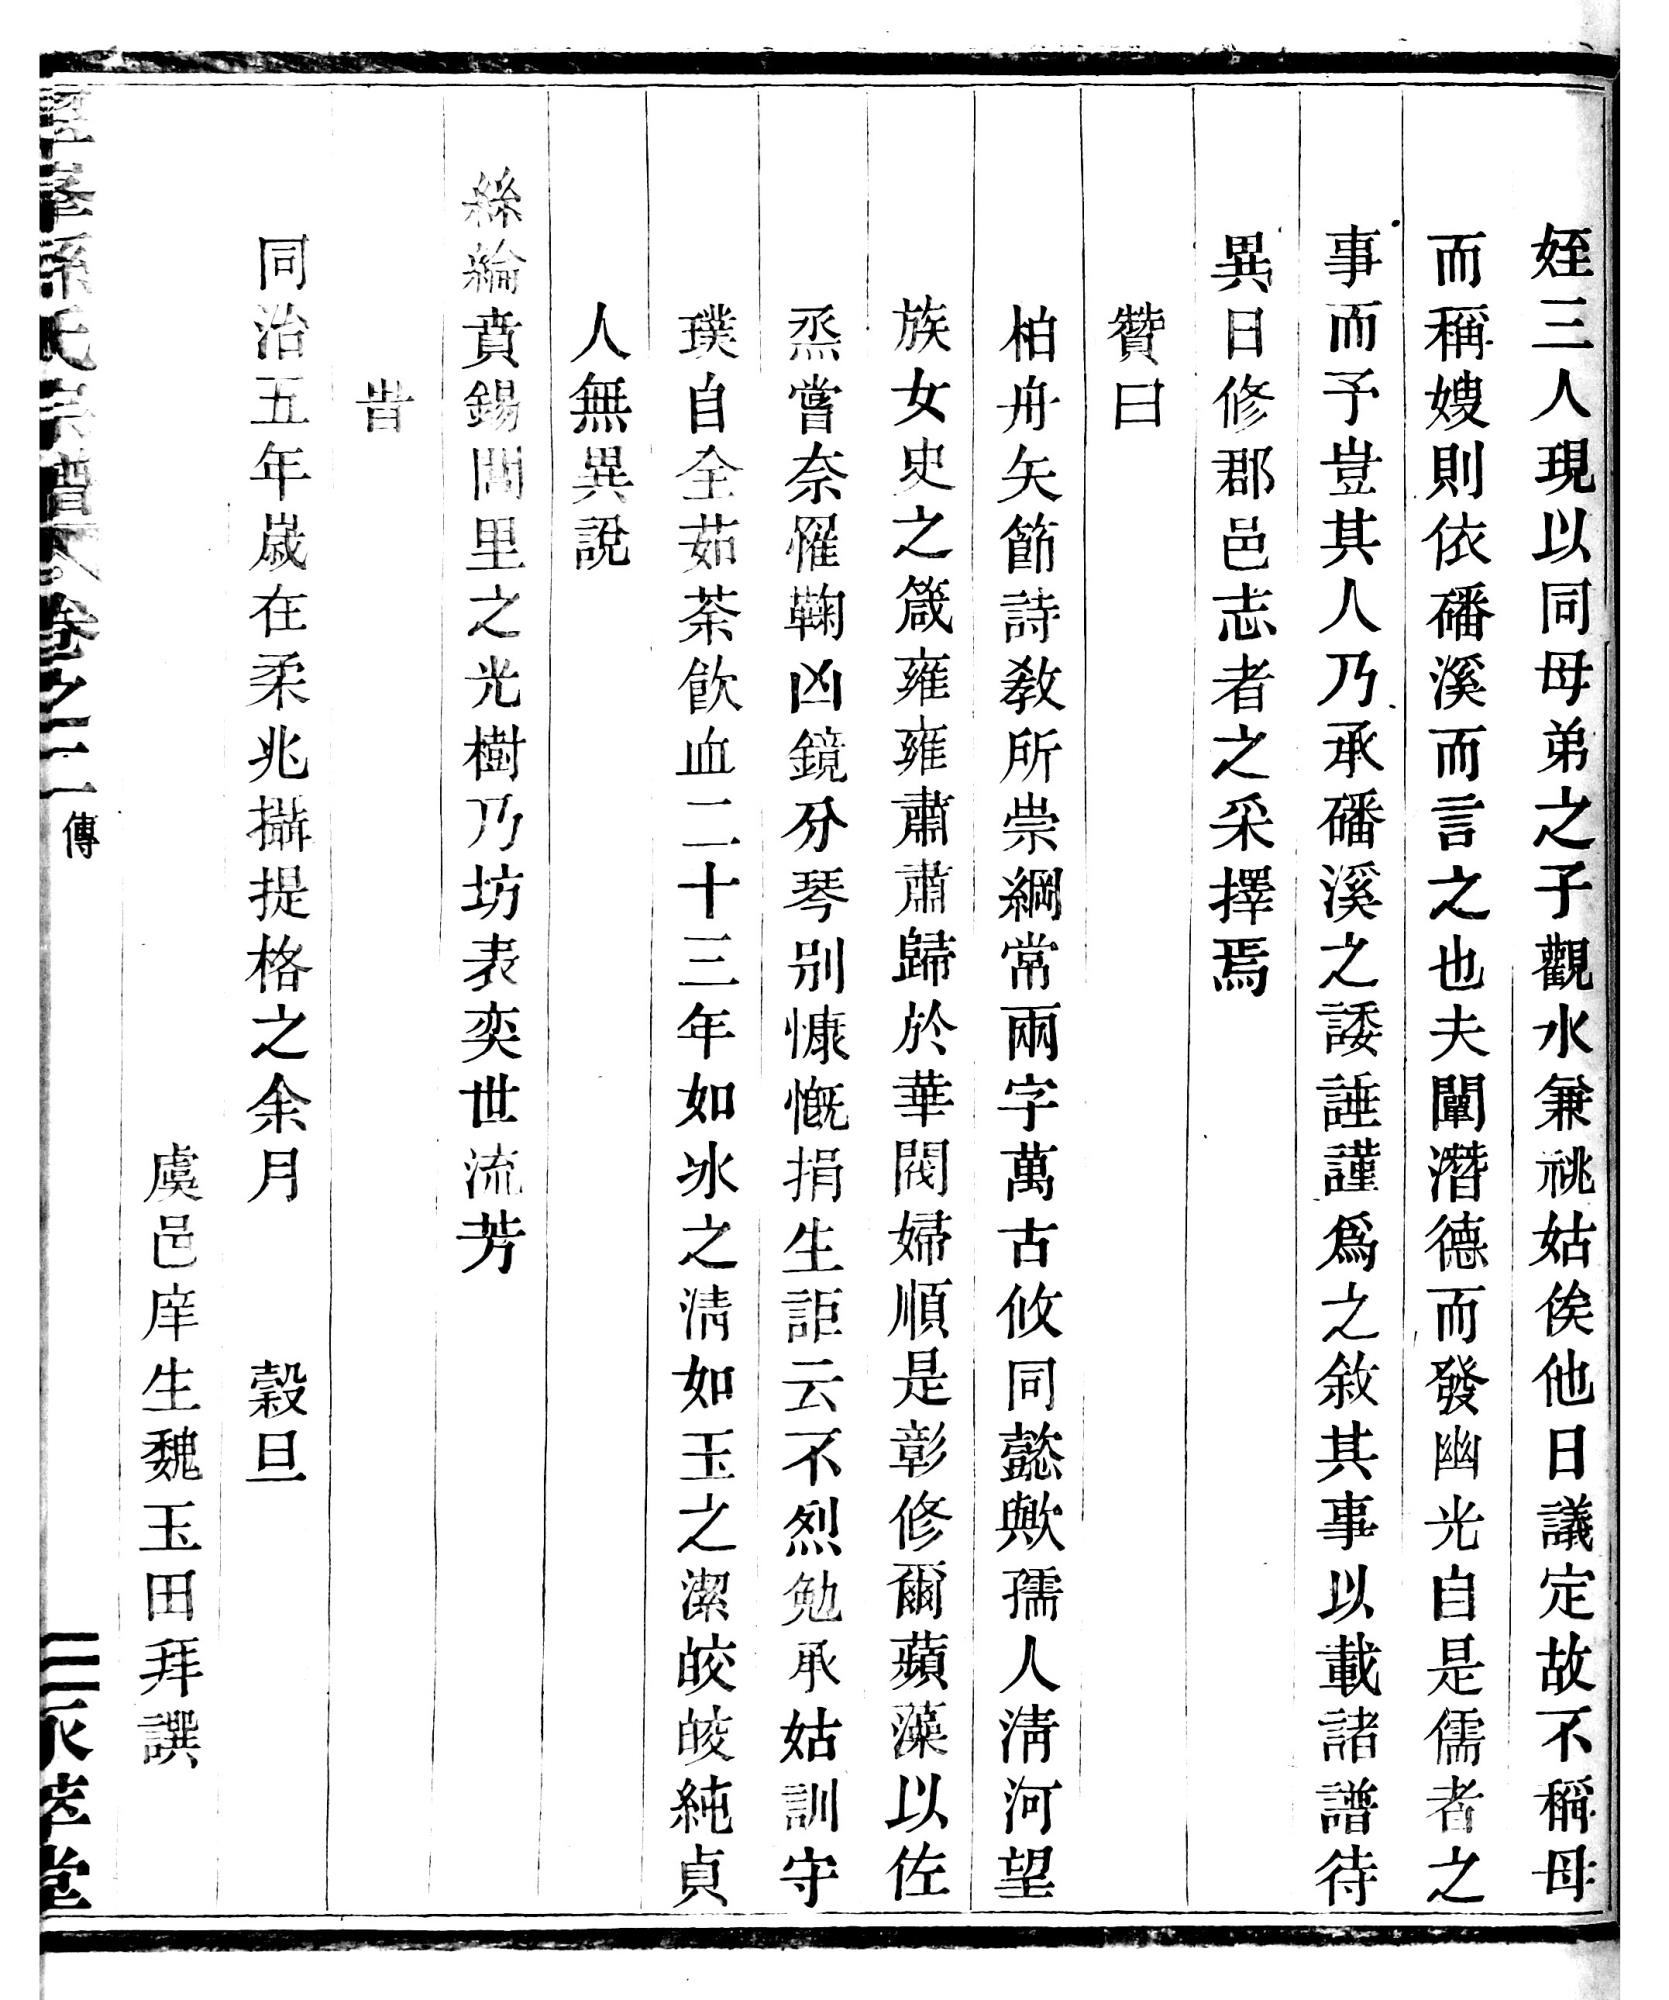 姪三人現以同母弟之子觀水兼祧姑俟他日議定故不稱母
而稱嫂則依磻溪而言之也夫闡潛德而發幽光自是儒者之
事而予豈其人乃承磻溪之諉諈謹爲之敘其事以載諸譜待
異日修郡邑志者之采擇焉
贊曰
柏舟矢節詩教所崇綱常兩字萬古攸同懿歟孺人淸河望
族女史之箴雍雍肅肅歸於華閥婦順是彰修爾蘋藻以佐
烝嘗奈罹鞠凶鏡分琴别慷慨捐生詎云不烈勉承姑訓守
璞自全茹荼飮血二十三年如氷之淸如玉之潔皎皎純貞
人無異說
絲綸賁錫閭里之光樹乃坊表奕世流芳
旹
同治五年歲在柔兆攝提格之余月 穀旦
虞邑庠生魏玉田拜譔
孫氏宗譜 卷之二 傳 三 承萃堂